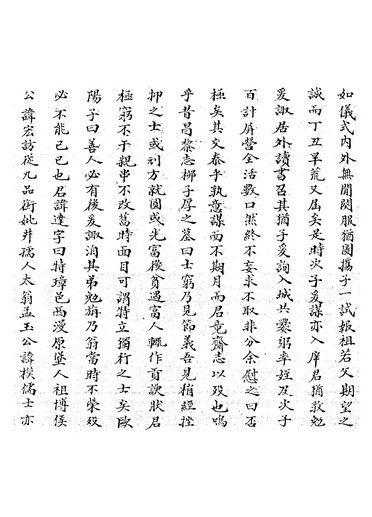 如儀式內外無間闋服猶圖攜子一試報祖若父期望之
誠而丁丑旱荒又屆矣是時次子爰謀亦入庠君猶敦勉
爰諏居外讀書召其猶子爰詢入城共爨躬率姪及次子
百計屏營全活數口然終不妄求不取非分余慰之曰否
極矣其交泰乎孰意謀西不期月而君竟齎志以歿也嗚
乎昔昌黎志柳子厚之墓曰士窮乃見節義吾見稍經挫
抑之士或刓方就圓或先富後貧遇富人輒作貢諛狀君
極窮不干親串不改舊時面目可謂特立獨行之士矣歐
陽子曰善人必有後爰諏消其弟勉旃乃翁當時不榮歿
必不能已已也君諱達字曰特璋邑西漫原堡人祖博侯
公諱宏訪從九品銜妣井孺人太翁孟玉公諱樸儒士亦